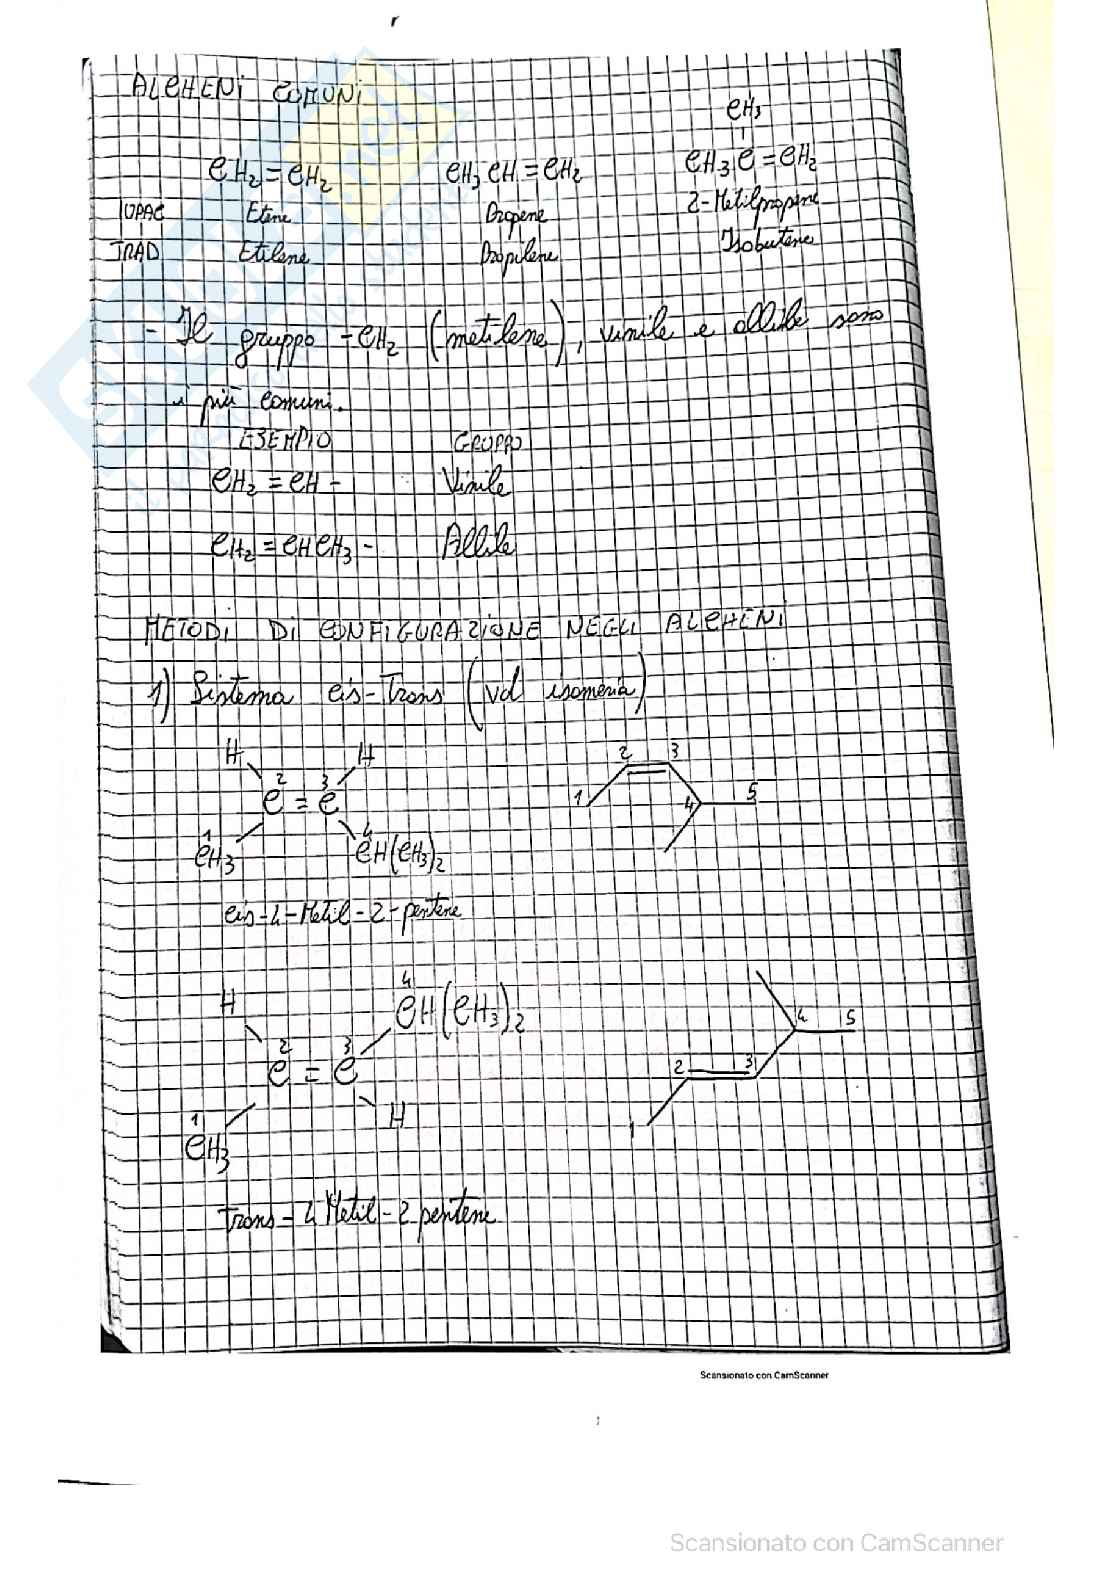 ALCHENI COMUNI
CH3
CH2=CH2 CH3CH=CH2 CH3C=CH2
IUPAC Etene Propene 2-Metilpropene
TRAD Etilene Propilene Isobutene
- Il gruppo -CH2 (metilene), vinile e allile sono
i più comuni.
ESEMPIO GRUPPO
CH2=CH- Vinile
CH2=CHCH3- Allile
METODI DI CONFIGURAZIONE NEGLI ALCHENI
1) Sistema cis-trans (vd isomeria)
H H 2 3
2 3
C = C 1 4 5
1 4
CH3 CH(CH3)2
cis-4-Metil-2-pentene
4
H CH(CH3)2 4 5
2 3
C = C 2 3
1 H 1
CH3
trans-4 Metil-2 pentene
Scansionato con CamScanner
Scansionato con CamScanner